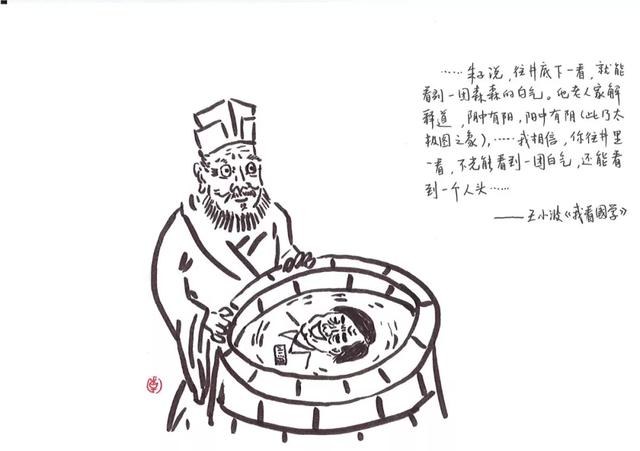 ……朱子说，往井底下一看，就能
看到一团森森的白气。他老人家解
释道，阴中有阳，阳中有阴（此乃太
极图之象），……我相信，你往井里
一看，不光能看到一团白气，还能看
到一个人头……
——王小波《我看国学》